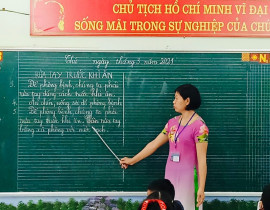 CHỦ TỊCH HỒ CHÍ MINH VĨ ĐẠI
SỐNG MÃI TRONG SỰ NGHIỆP CỦA CHÚ
Thứ ngày tháng 3 năm 2021
RỬA TAY TRƯỚC KHI ĂN
Để phòng bệnh, chúng ta phải
rửa tay đúng cách trước khi ăn.
phòng bệnh
Để phòng bệnh, chúng ta phải
rửa tay trước khi ăn. cần rửa tay
bằng xà phòng với nước sạch.